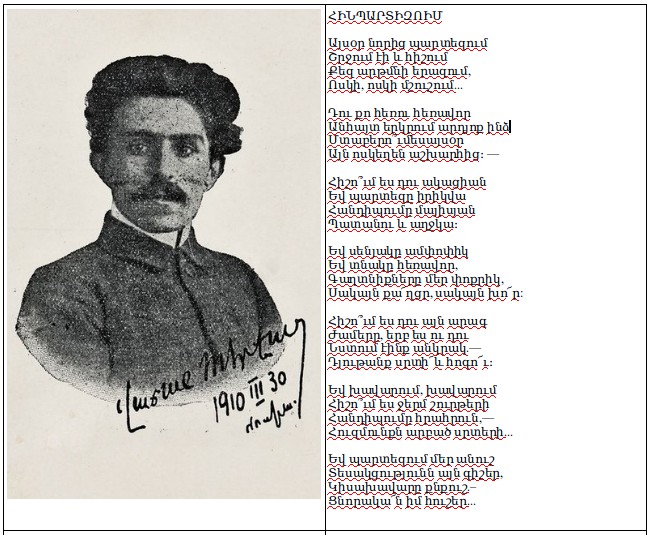 ՀԻՆՊԱՐՏԻԶՈՒՄ
Այսօր նորից պարտեզում
Շրջում էի և հիշում
Քեզ արթմնի երազում,
Ոսկի, ոսկի մշուշում...
Դու քո հեռու հեռավոր
Անհայտ երկրում արդյոք ինձ
Մտաբերո՞ւմեսայսօր
Այն ոսկեղեն աշխարհից։ —
Հիշո՞ւմ ես դու ակացիան
Եվ պարտեզը իրիկվա
Հանդիպումը մայիսյան
Պատանու և աղջկա։
Եվ սենյակը ամփոփիկ
Եվ տնակը հեռավոր,
Գաղտնիքները մեր փոքրիկ,
Սակայն քա՜ղցր, սակայն խո՜ր։
Հիշո՞ւմ ես դու այն արագ
Ժամերը, երբ ես ու դու
Նստում էինք անկրակ,—
Դյութանք սրտի՜ և հոգո՜ւ։
Եվ խավարում, խավարում
Հիշո՞ւմ ես ջերմ շուրթերի
Հանդիպումը հրահրուն,—
Հուզմունքն արբած սրտերի...
Եվ պարտեզում մեր անուշ
Տեսակցությունն այն գիշեր,
Կիսախավարը քնքուշ,–
Ցնորակա՜ն իմ հուշեր...
Վահան Տերեան
1910 III 30